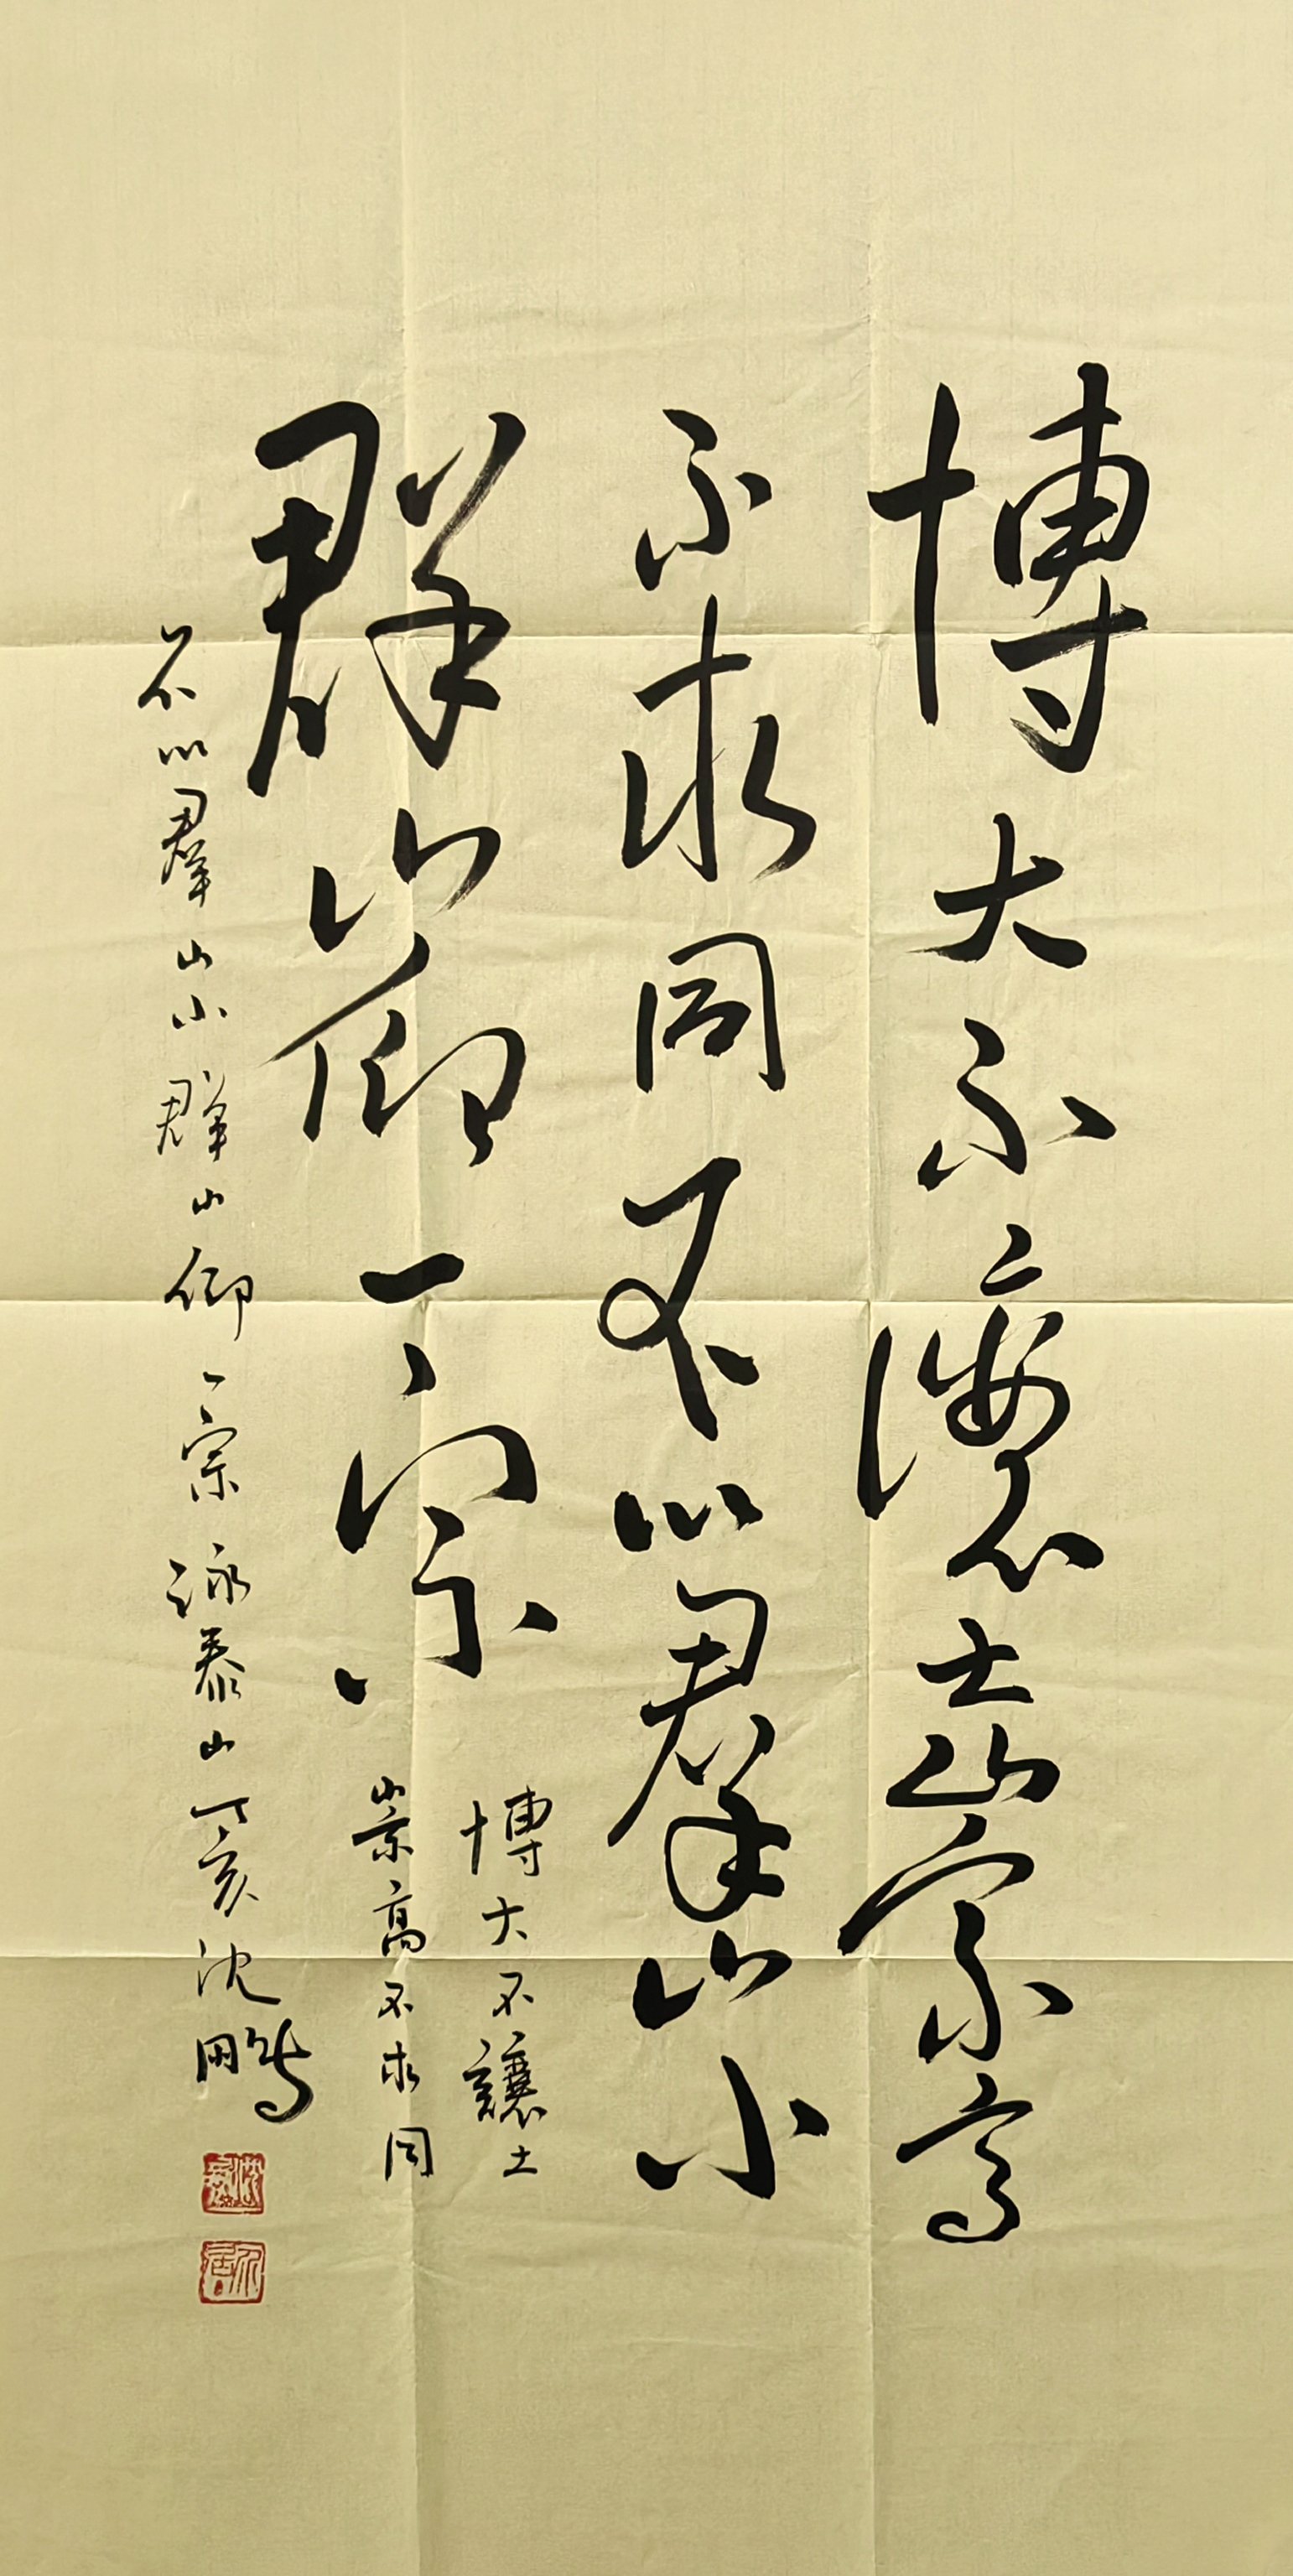 博大不讓土崇高
不求同不以羣山小
群山仰一宗
博大不讓土
崇高不求同
不以羣山小群山仰一宗詠泰山丁亥沈鵬